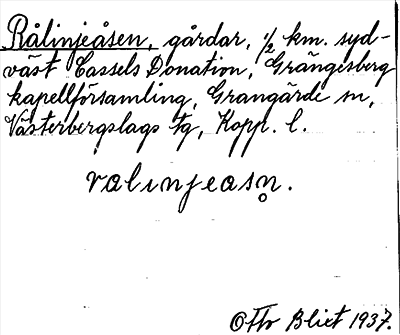 Rålinjeåsen, gårdar, ½ km. syd-
väst Cassels Donation, Grängesberg
kapellförsamling, Grangärde sn,
Västerbergslags tg, Kopp. l.
ralinjeasn.
Otto Blixt 1937.